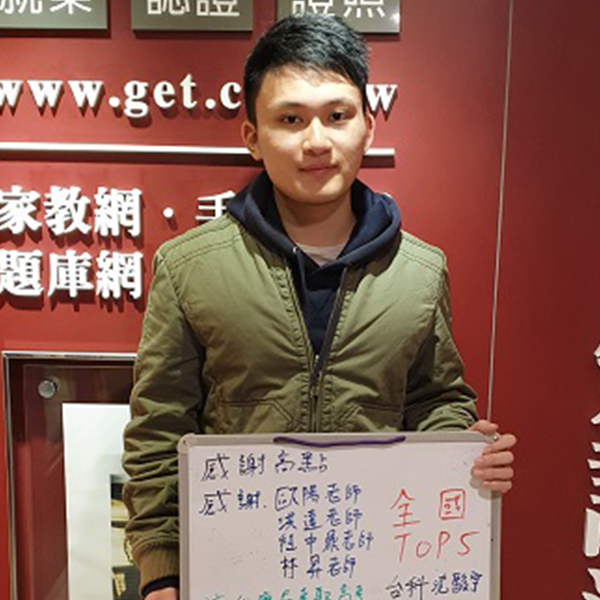 就業 認證 證照
www.get.c
家教網・手
題庫網
感謝高點
感謝.歐陽老師
洪達老師
程中鼎老師
林昇老師
全國
TOP5
台科